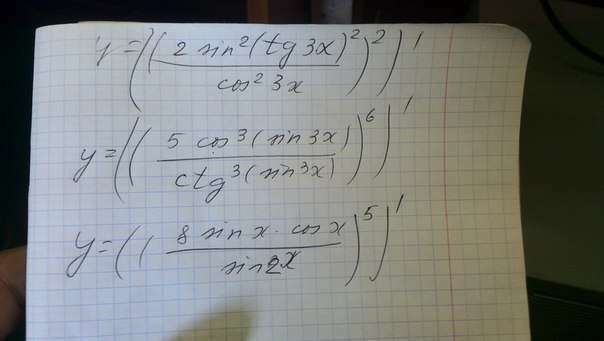 y = ((2 sin²(tg 3x)² / cos² 3x)²)'
y = ((5 cos³(sin 3x) / ctg³(sin³x))⁶)'
y = ((8 sin x · cos x / sin 2x)⁵)'